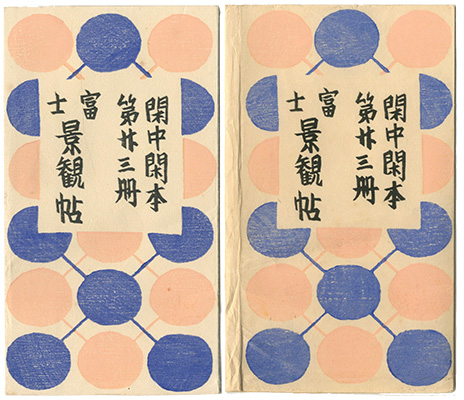 閑中閑本
第廿三冊
富士
景観帖
閑中閑本
第廿三冊
富士
景観帖